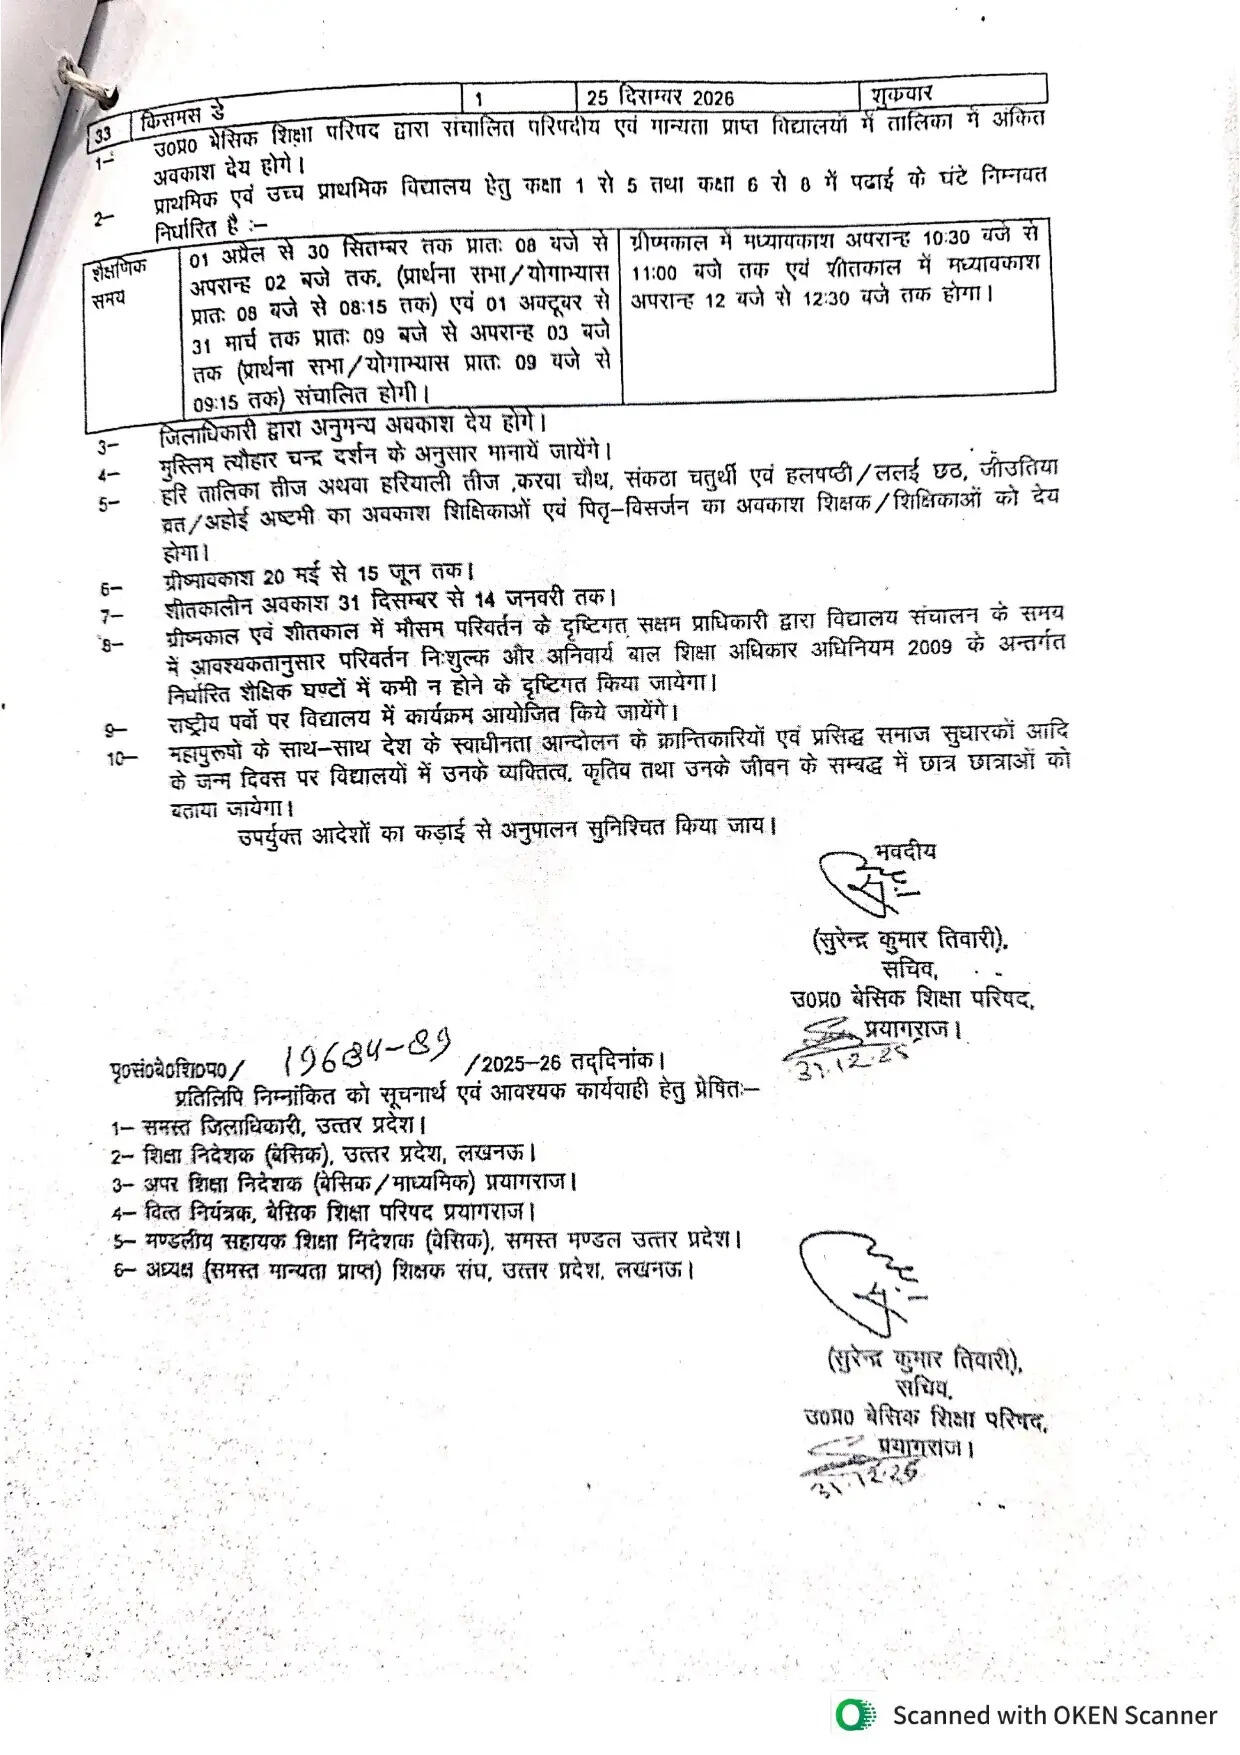 33 किसमस डे 1 25 दिसम्बर 2026 शुक्रवार
1- उ0प्र0 बेसिक शिक्षा परिषद द्वारा संचालित परिषदीय एवं मान्यता प्राप्त विद्यालयों में तालिका में अंकित
अवकाश देय होगे।
2- प्राथमिक एवं उच्च प्राथमिक विद्यालय हेतु कक्षा 1 से 5 तथा कक्षा 6 से 8 में पढाई के घंटे निम्नवत
निर्धारित है :-
शैक्षणिक समय
01 अप्रैल से 30 सितम्बर तक प्रातः 08 बजे से
अपरान्ह 02 बजे तक, (प्रार्थना सभा/योगाभ्यास
प्रातः 08 बजे से 08:15 तक) एवं 01 अक्टूबर से
31 मार्च तक प्रातः 09 बजे से अपरान्ह 03 बजे
तक (प्रार्थना सभा/योगाभ्यास प्रातः 09 बजे से
09:15 तक) संचालित होगी।
ग्रीष्मकाल में मध्यावकाश अपरान्ह 10:30 बजे से
11:00 बजे तक एवं शीतकाल में मध्यावकाश
अपरान्ह 12 बजे से 12:30 बजे तक होगा।
3- जिलाधिकारी द्वारा अनुमन्य अवकाश देय होगे।
4- मुस्लिम त्यौहार चन्द्र दर्शन के अनुसार मानायें जायेंगे।
5- हरि तालिका तीज अथवा हरियाली तीज ,करवा चौथ, संकठा चतुर्थी एवं हलषष्ठी/ललई छठ, जीउतिया
व्रत/अहोई अष्टमी का अवकाश शिक्षिकाओं एवं पितृ-विसर्जन का अवकाश शिक्षक/शिक्षिकाओं को देय
होगा।
6- ग्रीष्मावकाश 20 मई से 15 जून तक।
7- शीतकालीन अवकाश 31 दिसम्बर से 14 जनवरी तक।
8- ग्रीष्मकाल एवं शीतकाल में मौसम परिवर्तन के दृष्टिगत सक्षम प्राधिकारी द्वारा विद्यालय संचालन के समय
में आवश्यकतानुसार परिवर्तन निःशुल्क और अनिवार्य बाल शिक्षा अधिकार अधिनियम 2009 के अन्तर्गत
निर्धारित शैक्षिक घण्टों में कमी न होने के दृष्टिगत किया जायेगा।
9- राष्ट्रीय पर्वो पर विद्यालय में कार्यक्रम आयोजित किये जायेंगे।
10- महापुरूषों के साथ-साथ देश के स्वाधीनता आन्दोलन के क्रान्तिकारियों एवं प्रसिद्ध समाज सुधारकों आदि
के जन्म दिवस पर विद्यालयों में उनके व्यक्तित्व, कृतिव तथा उनके जीवन के सम्बद्ध में छात्र छात्राओं को
बताया जायेगा।
उपर्युक्त आदेशों का कड़ाई से अनुपालन सुनिश्चित किया जाय।
भवदीय
(सुरेन्द्र कुमार तिवारी),
सचिव,
उ0प्र0 बेसिक शिक्षा परिषद,
प्रयागराज।
31.12.25
पृ0सं0बे0शि0प0/ 19684-89 /2025-26 तद्दिनांक।
प्रतिलिपि निम्नांकित को सूचनार्थ एवं आवश्यक कार्यवाही हेतु प्रेषितः-
1- समस्त जिलाधिकारी, उत्तर प्रदेश।
2- शिक्षा निदेशक (बेसिक), उत्तर प्रदेश, लखनऊ।
3- अपर शिक्षा निदेशक (बेसिक/माध्यमिक) प्रयागराज।
4- वित्त नियंत्रक, बेसिक शिक्षा परिषद प्रयागराज।
5- मण्डलीय सहायक शिक्षा निदेशक (बेसिक), समस्त मण्डल उत्तर प्रदेश।
6- अध्यक्ष (समस्त मान्यता प्राप्त) शिक्षक संघ, उत्तर प्रदेश, लखनऊ।
(सुरेन्द्र कुमार तिवारी),
सचिव,
उ0प्र0 बेसिक शिक्षा परिषद,
प्रयागराज।
31.12.25
Scanned with OKEN Scanner